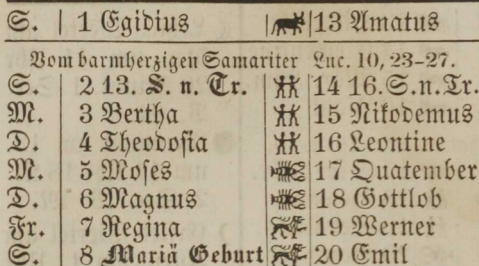 S. 1 Egidius 13 Amatus
Vom barmherzigen Samariter Luc. 10, 23-27.
S. 2 13. S. n. Tr. 14 16. S. n. Tr.
M. 3 Bertha 15 Nikodemus
D. 4 Theodosia 16 Leontine
M. 5 Moses 17 Quatember
D. 6 Magnus 18 Gottlob
Fr. 7 Regina 19 Werner
S. 8 Mariä Geburt 20 Emil